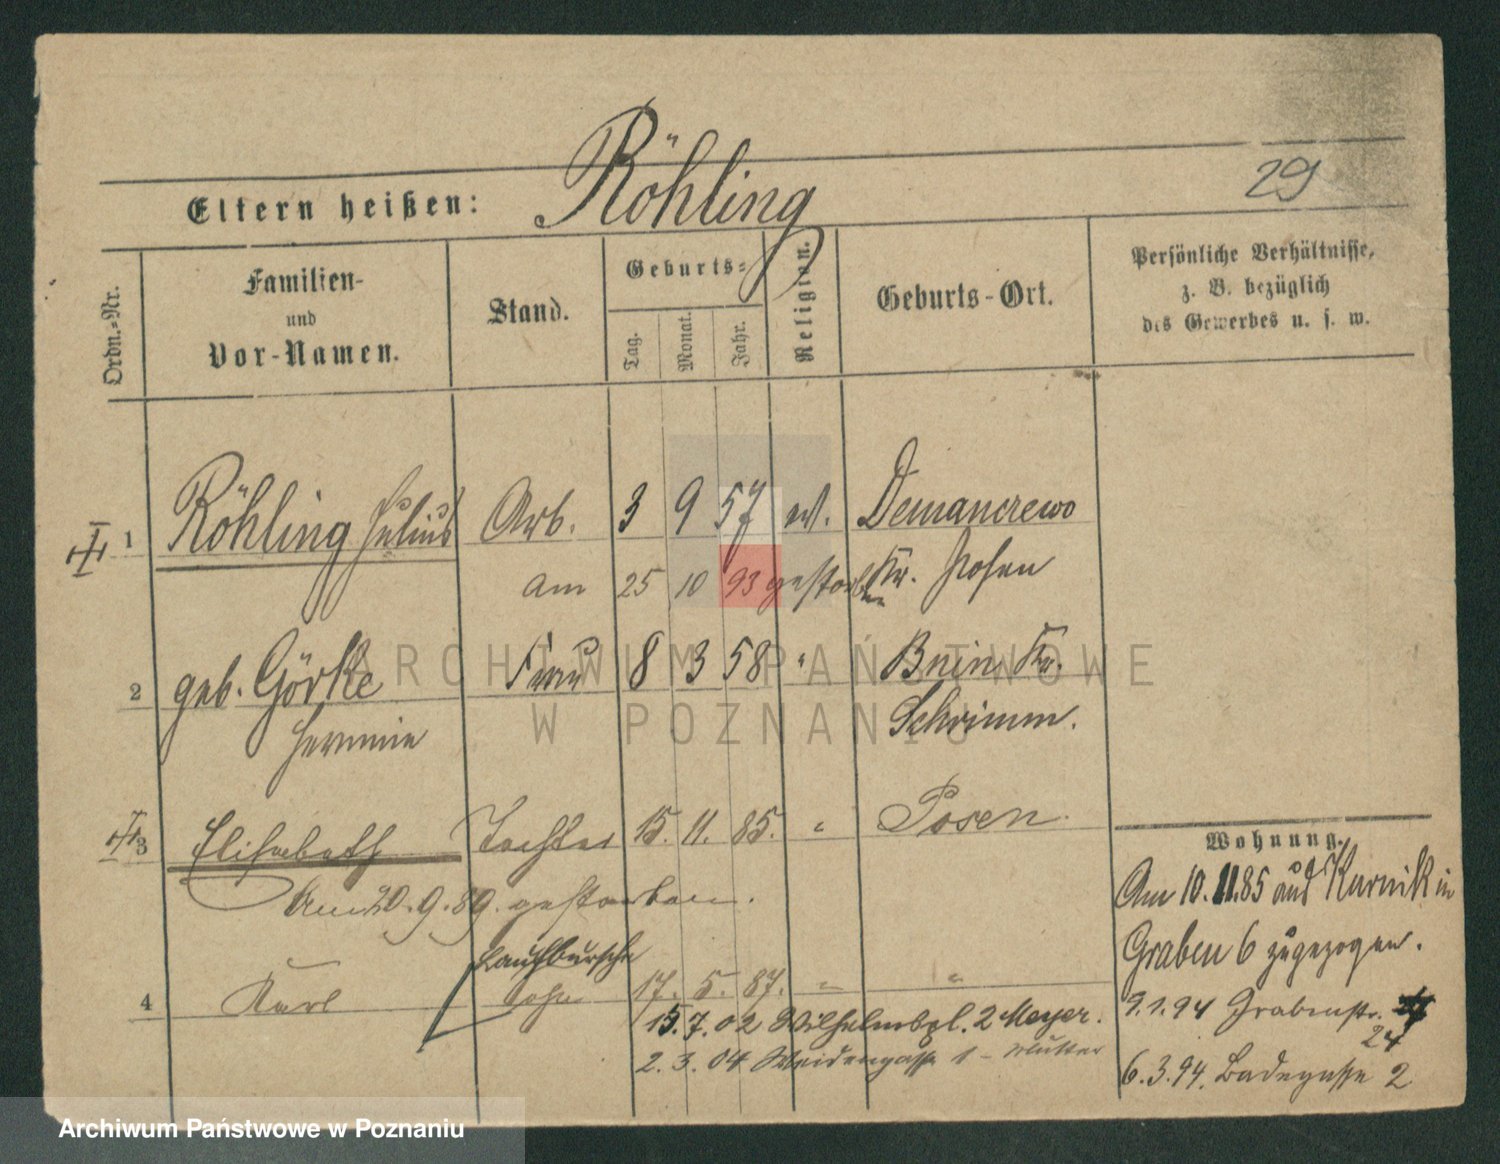 29
Eltern heißen: Röhling
Ordn.-Nr.
Familien-
und
Vor-Namen.
Stand.
Geburts-
Tag.
Monat.
Jahr.
Religion.
Geburts-Ort.
Persönliche Verhältnisse,
z. B. bezüglich
des Gewerbes u. s. w.
1 Röhling Julius Arb. 3 9 57 ev. Demanczewo
am 25 10 93 gestorben Kr. Posen
2 geb. Görke Frau 8 3 58 " Bnin Kr.
Hermine Schrimm.
3 Elisabeth Tochter 15. 11. 85. " Posen.
Am 20. 9. 89. gestorben.
Laufbursche
4 Karl Sohn 17. 5. 87. " "
15. 7. 02 Wilhelmspl. 2 Meyer.
2. 3. 04 Weidengasse 1 - Mutter
Wohnung.
Am 10. 11. 85 aus Kurnik in
Graben 6 zugezogen.
9. 1. 94 Grabenstr.
24
6. 3. 94. Badegasse 2
ARCHIWUM PAŃSTWOWE
W POZNANIU
Archiwum Państwowe w Poznaniu